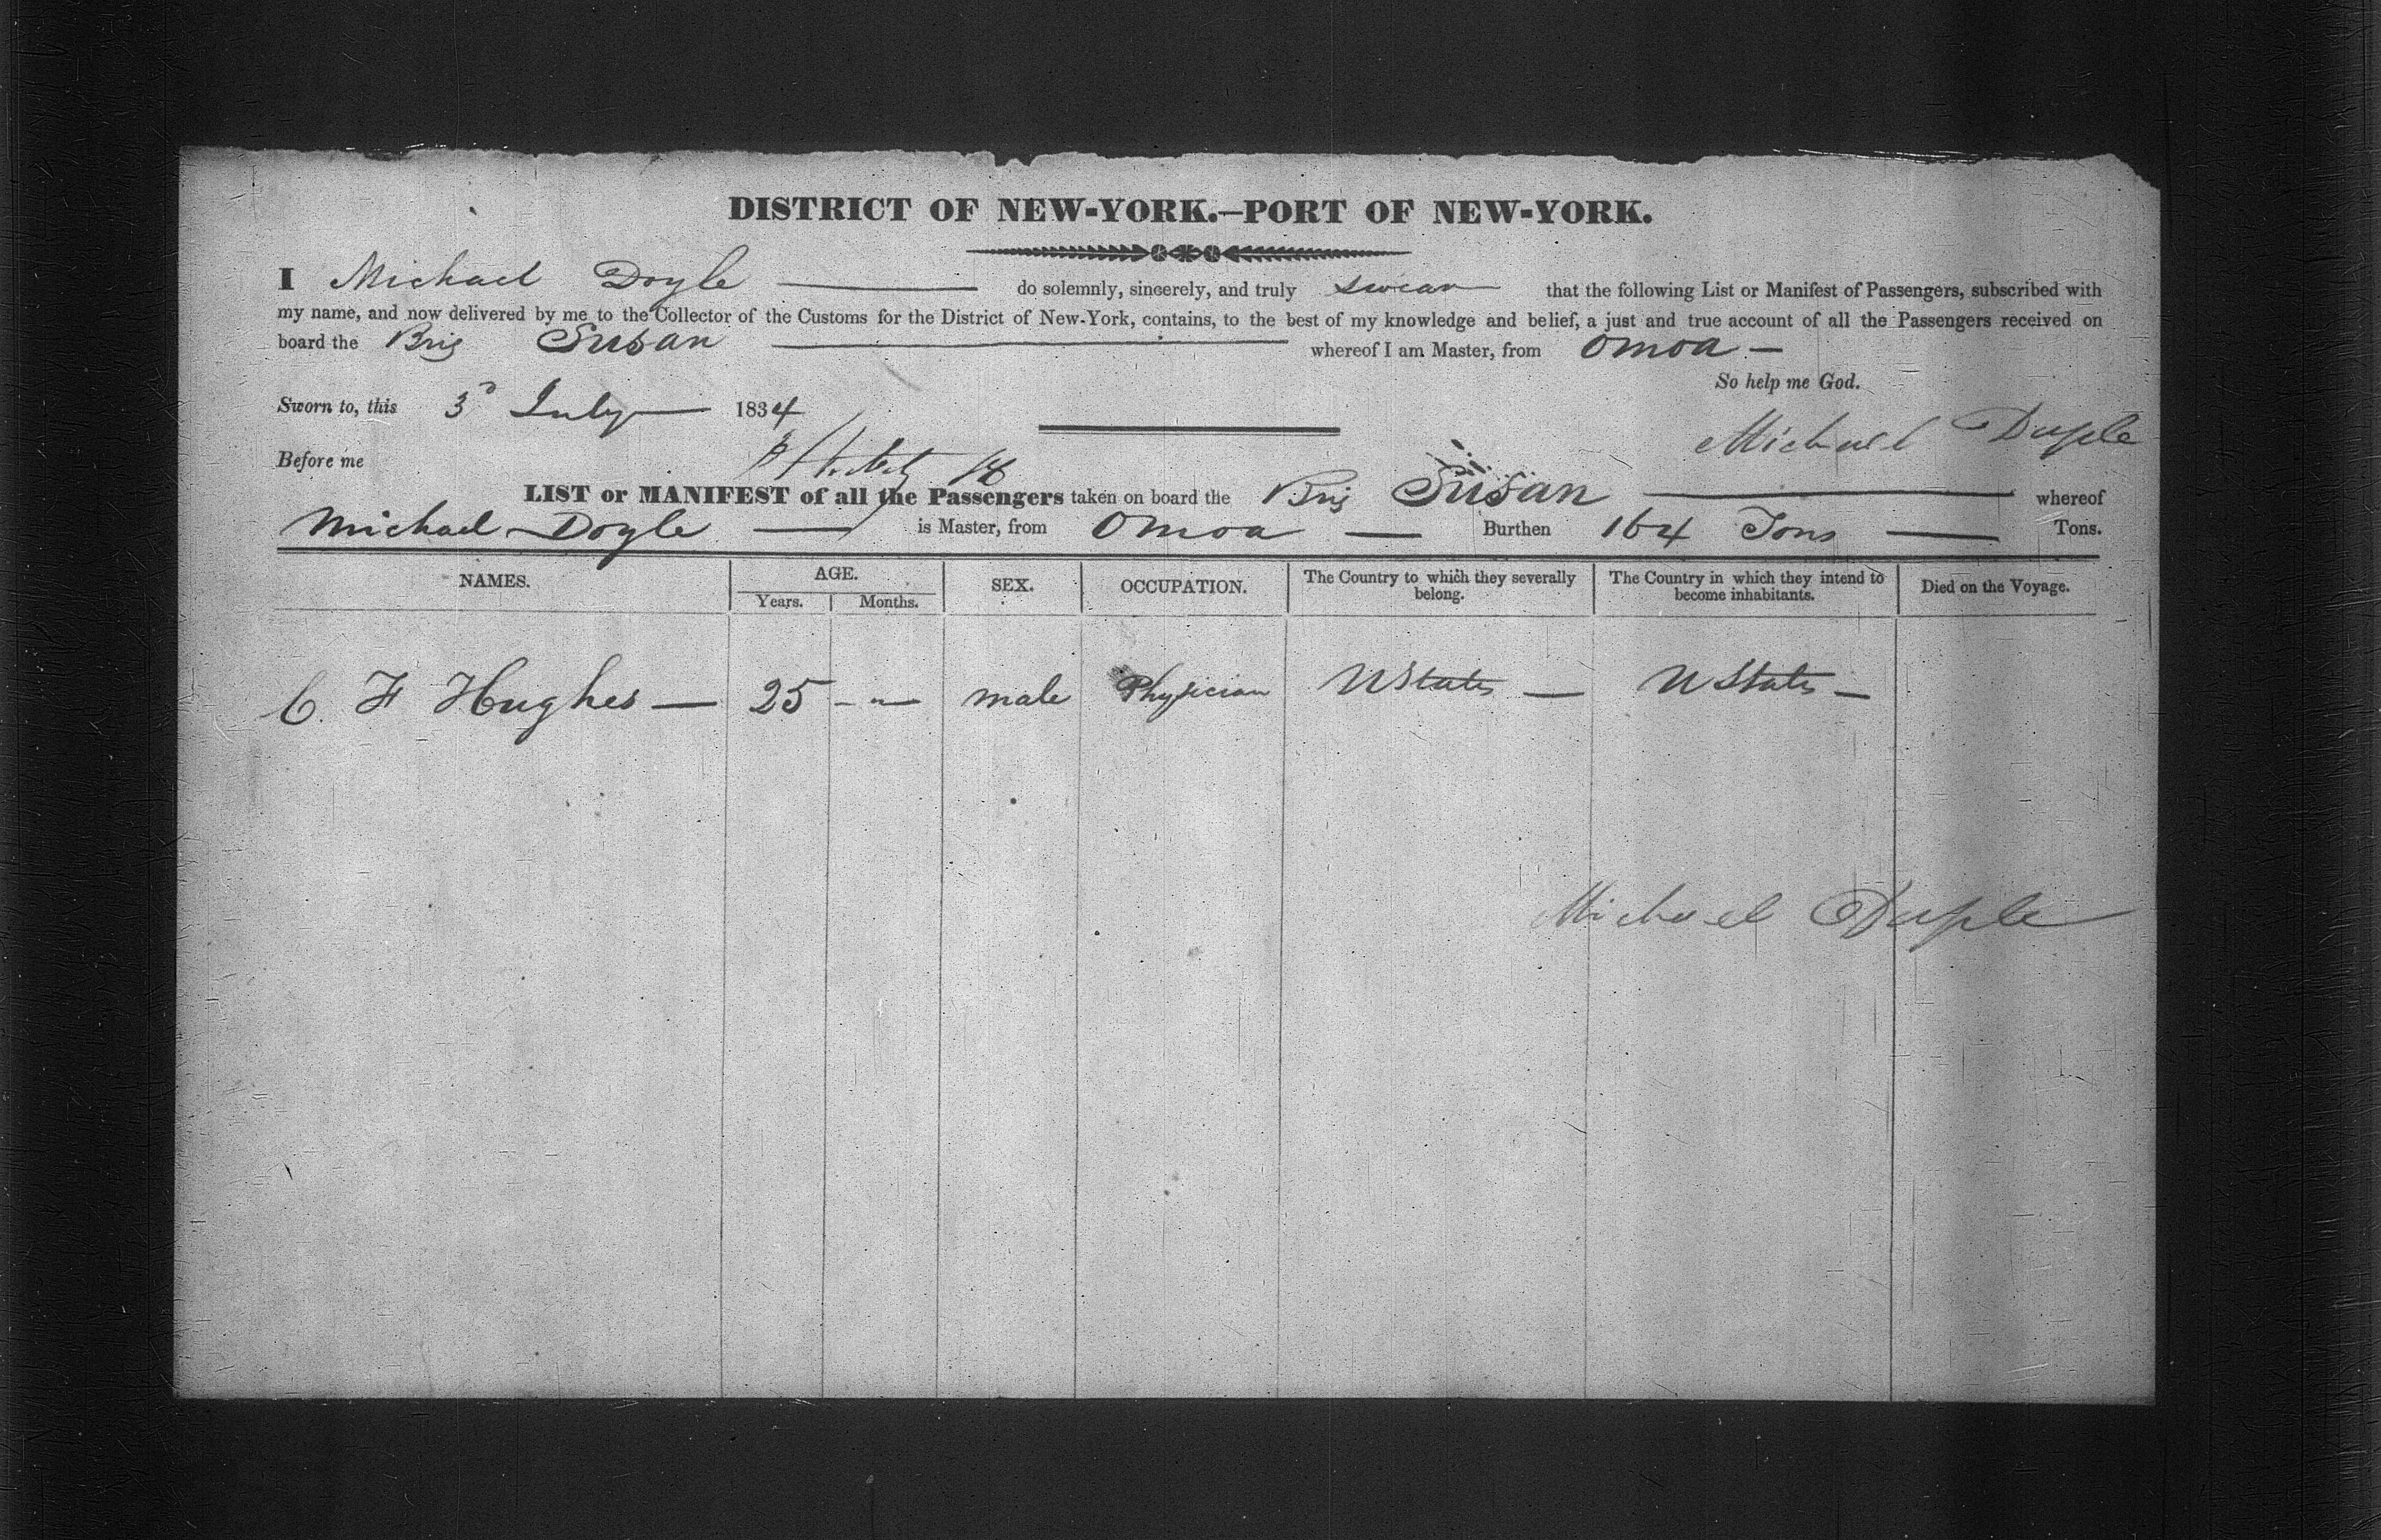 DISTRICT OF NEW-YORK.—PORT OF NEW-YORK.
I Michael Doyle — do solemnly, sincerely, and truly swear that the following List or Manifest of Passengers, subscribed with
my name, and now delivered by me to the Collector of the Customs for the District of New-York, contains, to the best of my knowledge and belief, a just and true account of all the Passengers received on
board the Brig Susan — whereof I am Master, from Omoa —
So help me God.
Sworn to, this 3d July — 1834
Michael
Before me
LIST or MANIFEST of all the Passengers taken on board the Brig Susan — whereof
Michael Doyle — is Master, from Omoa — Burthen 164 Tons — Tons.
NAMES. AGE. SEX. OCCUPATION. The Country to which they severally belong. The Country in which they intend to become inhabitants. Died on the Voyage.
Years. Months.
C. F Hughes — 25 - " - male Physician U States — U States —
Michael